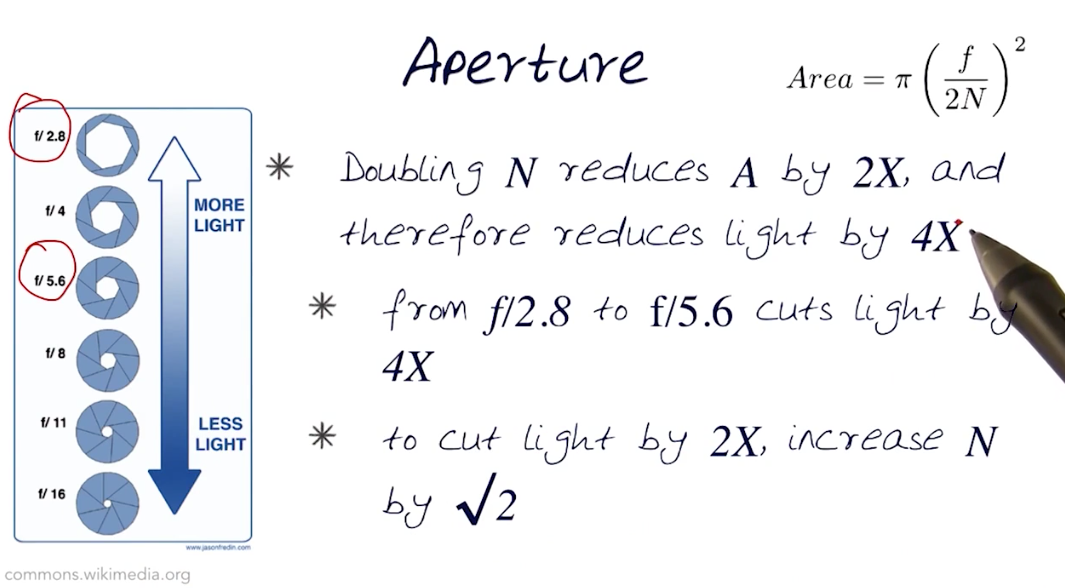 Aperture
Area = π (f/2N)²
f/ 2.8
f/ 4
f/ 5.6
f/ 8
f/ 11
f/ 16
MORE
LIGHT
LESS
LIGHT
www.jasonfredin.com
✳ Doubling N reduces A by 2X, and
therefore reduces light by 4X
✳ from f/2.8 to f/5.6 cuts light by
4X
✳ to cut light by 2X, increase N
by √2
commons.wikimedia.org